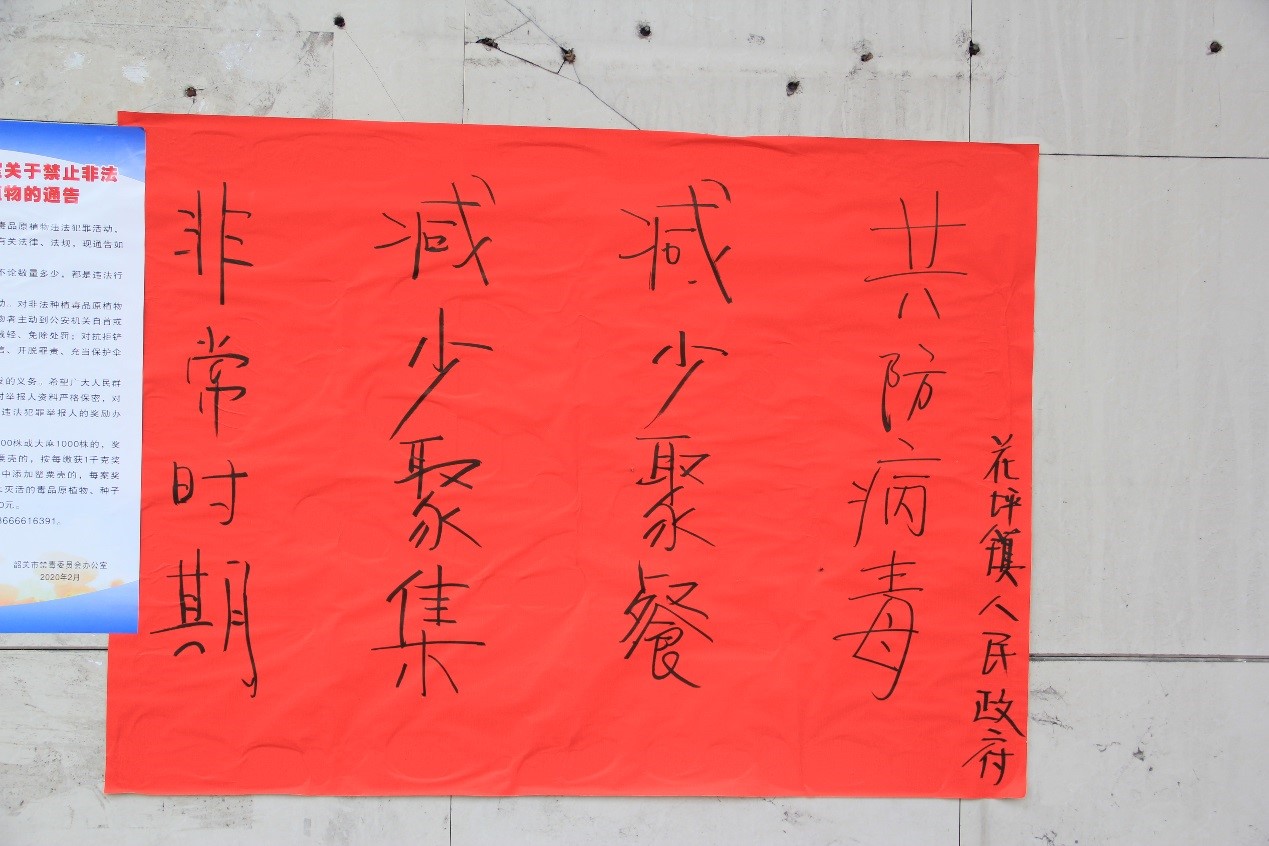 关于禁止非法
物的通告
毒品原植物违法犯罪活动,
有关法律、法规,现通告如
不论数量多少,都是违法行
动。对非法种植毒品原植物
物者主动到公安机关自首或
减轻、免除处罚;对抗拒铲
、开脱罪责、充当保护伞
的义务。希望广大人民群
对举报人资料严格保密,对
违法犯罪举报人的奖励办
00株或大麻1000株的,奖
粟壳的,按每缴获1千克奖
中添加罂粟壳的,每案奖
灭活的毒品原植物、种子
0元。
3666616391。
韶关市禁毒委员会办公室
2020年2月
非常时期
减少聚集
减少聚餐
共防病毒
花坪镇人民政府